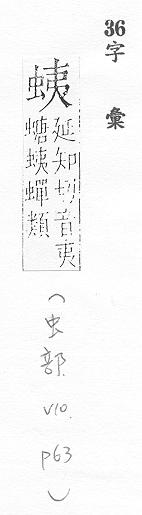 36字彙
蛦
延知切音夷
螗蛦蟬類
（虫部 V10. P63）